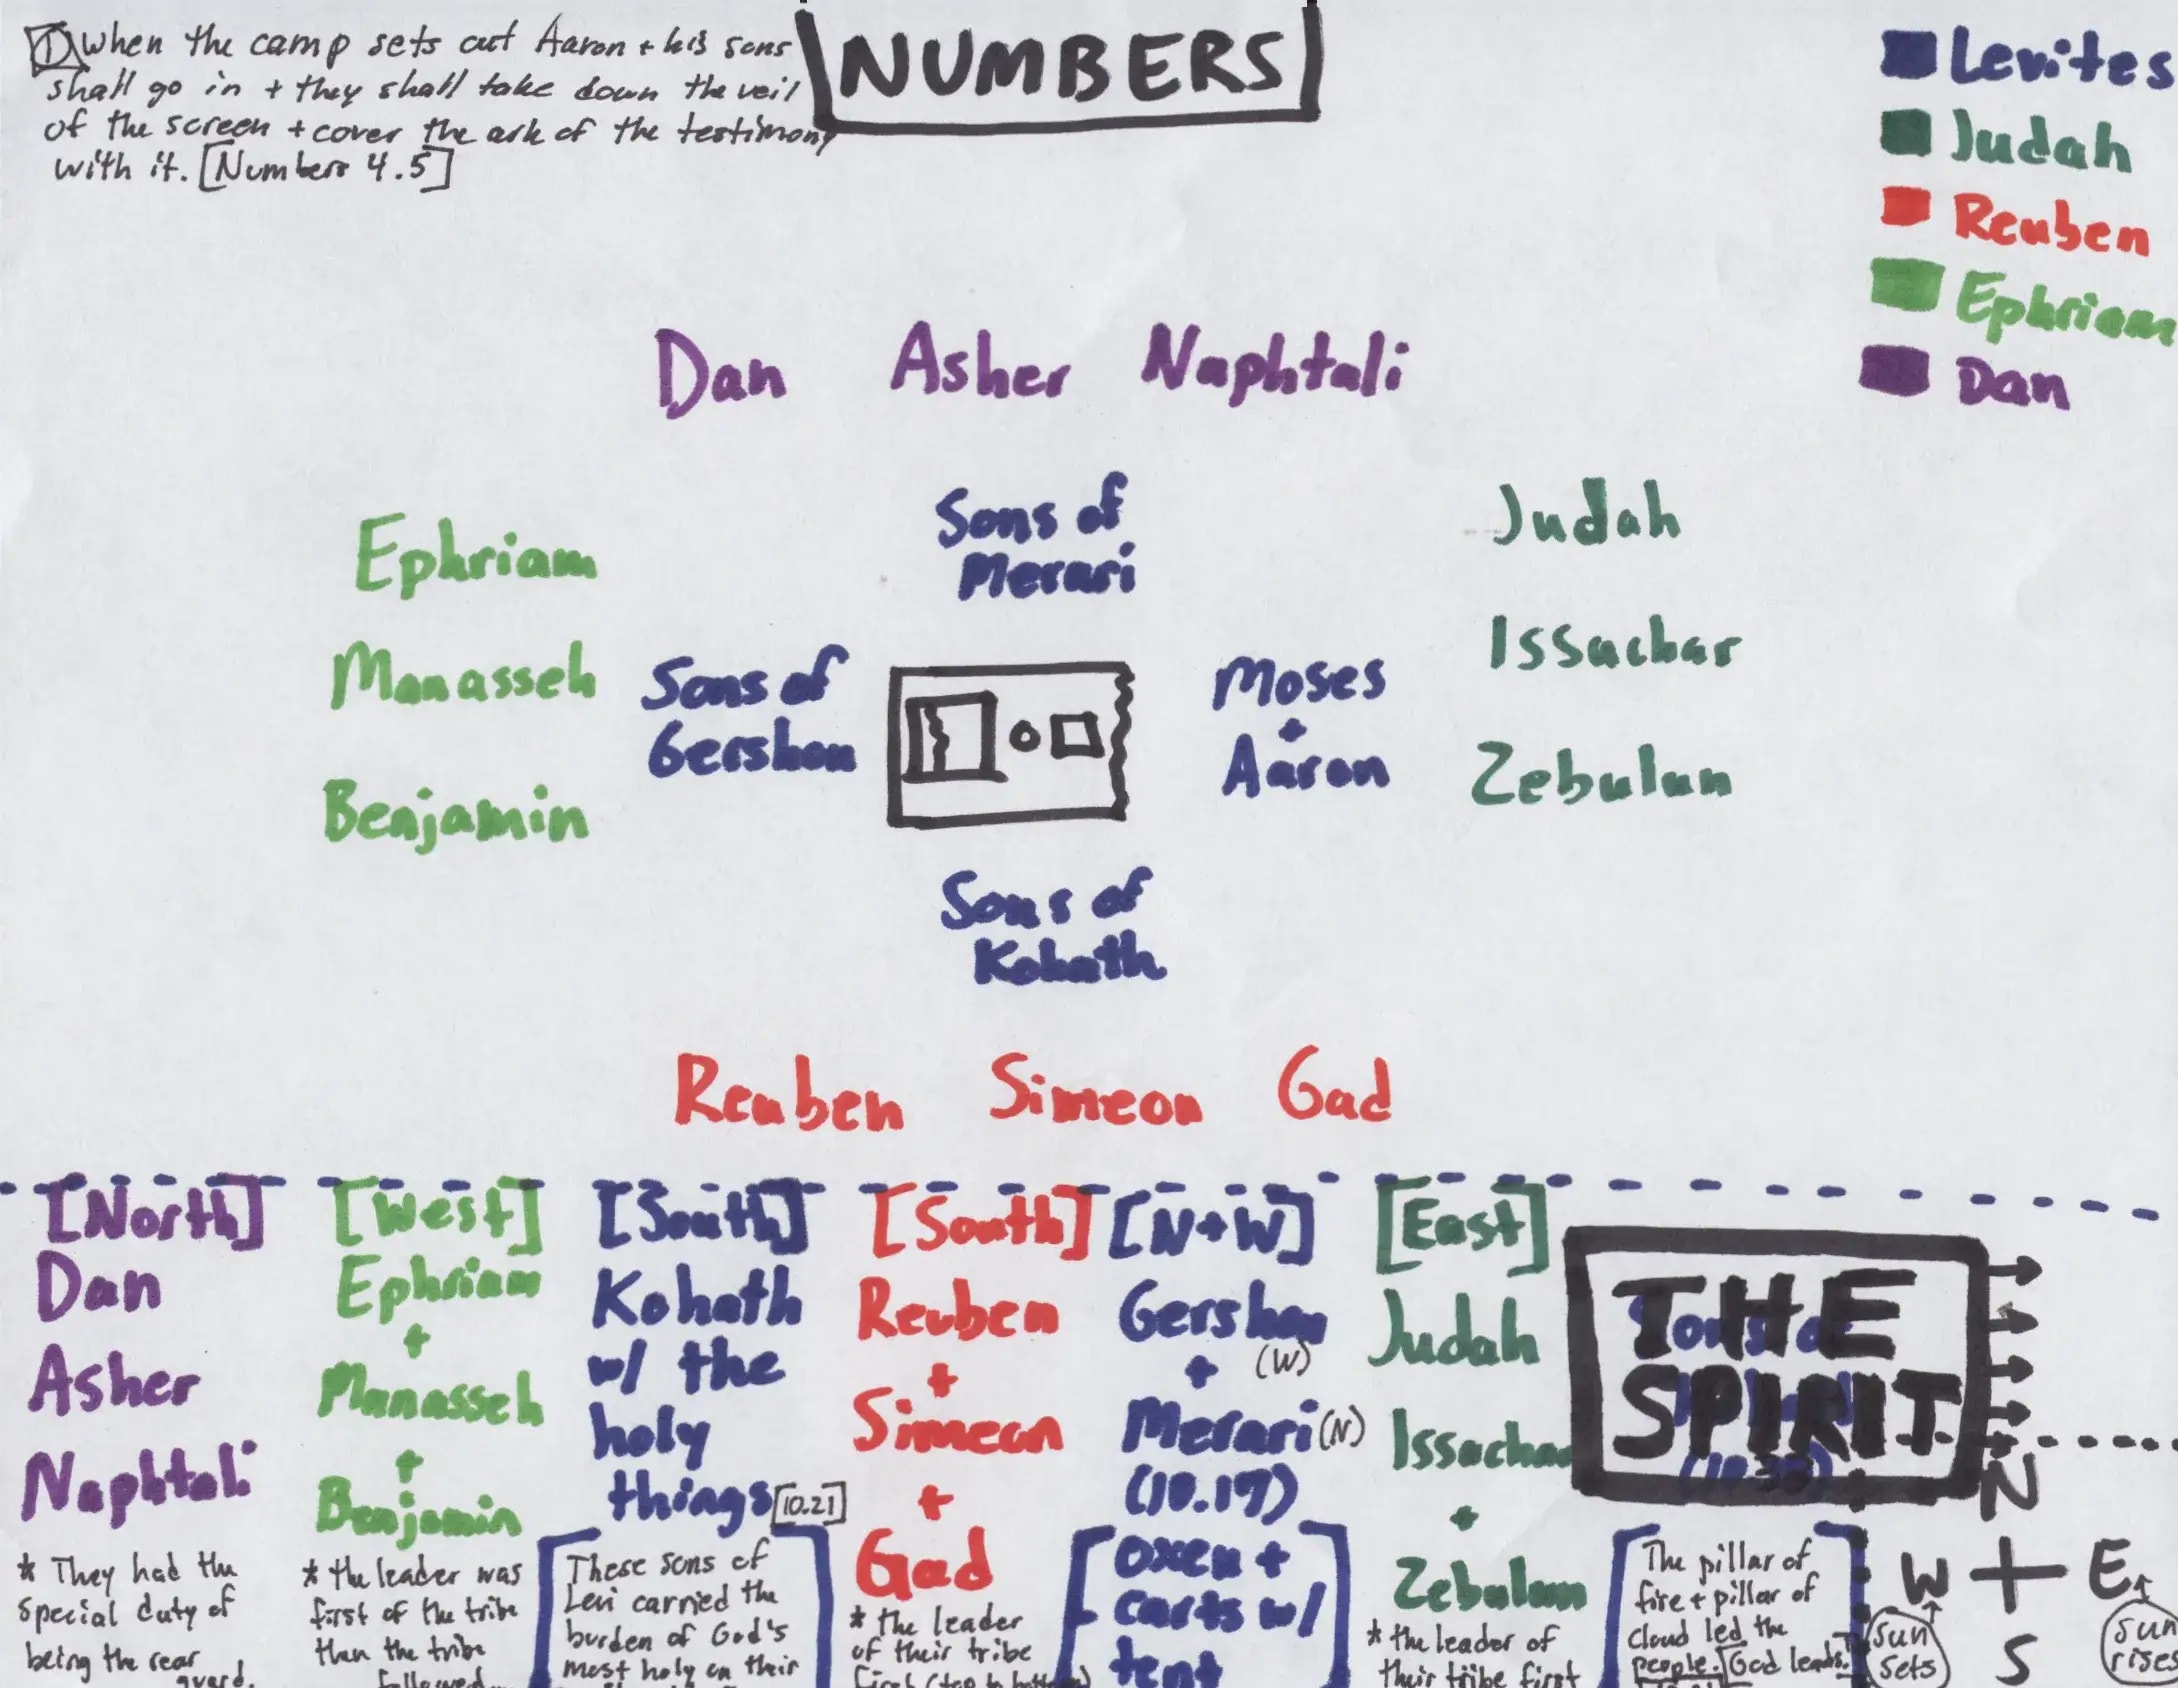 1 When the camp sets out Aaron + his sons
shall go in + they shall take down the veil
of the screen + cover the ark of the testimony
with it. [Numbers 4.5]
NUMBERS
Levites
Judah
Reuben
Ephriam
Dan
Dan Asher Naphtali
Sons of
Merari
Ephriam
Manasseh
Benjamin
Sons of
Gershon
Moses
+
Aaron
Judah
Issachar
Zebulun
Sons of
Kohath
Reuben Simeon Gad
[North]
Dan
Asher
Naphtali
* They had the
special duty of
being the rear
guard.
[West]
Ephriam
+
Manasseh
+
Benjamin
* the leader was
first of the tribe
then the tribe
followed
[South]
Kohath
w/ the
holy
things [10.21]
These sons of
Levi carried the
burden of God's
most holy on their
[South]
Reuben
+
Simeon
+
Gad
* the leader
of their tribe
first (top to bottom)
[N+W]
Gershon
(W)
+
Merari (N)
(10.17)
oxen +
carts w/
tent
[East]
Judah
Issachar
+
Zebulun
* the leader of
their tribe first
THE
SPIRIT
The pillar of
fire + pillar of
cloud led the
people. God leads.
N
W E
S
sun
sets
sun
rises